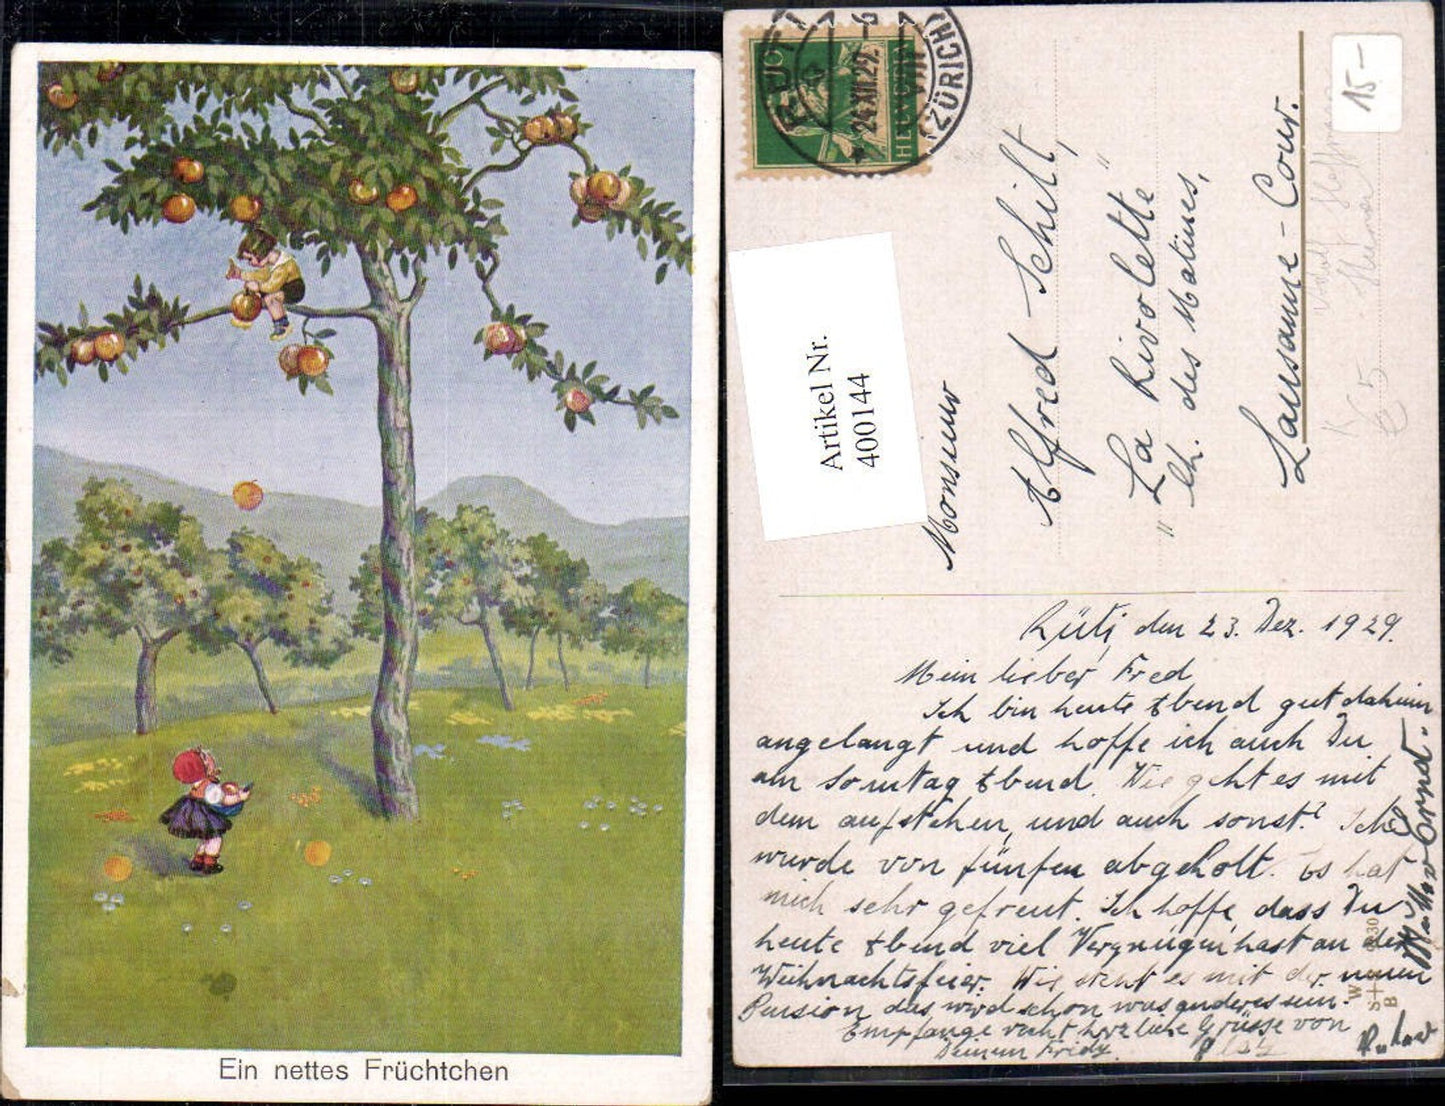 Ein nettes Früchtchen
RÜTI
(ZÜRICH)
24.XII.29.-6
VIII
HELVETIA
15-
Artikel Nr.
400144
Monsieur
Alfred Schilt,
"La Rivolette"
Ch. des Matines,
Lausanne-Cour.
K 5
€ 5
Rüti, den 23. Dez. 1929.
Mein lieber Fred
Ich bin heute Abend gut daheim
angelangt und hoffe ich auch Du
am Sonntag Abend. Wie geht es mit
dem aufstehen, und auch sonst? Ich
wurde von fünfen abgeholt. Es hat
mich sehr gefreut. Ich hoffe, dass Du
heute Abend viel Vergnügen hast an der
Weihnachtsfeier. Wie steht es mit der neuen
Pension das wird schon was anderes sein.
Empfange recht herzliche Grüsse von
Deinem Fridy.
W
S+
B